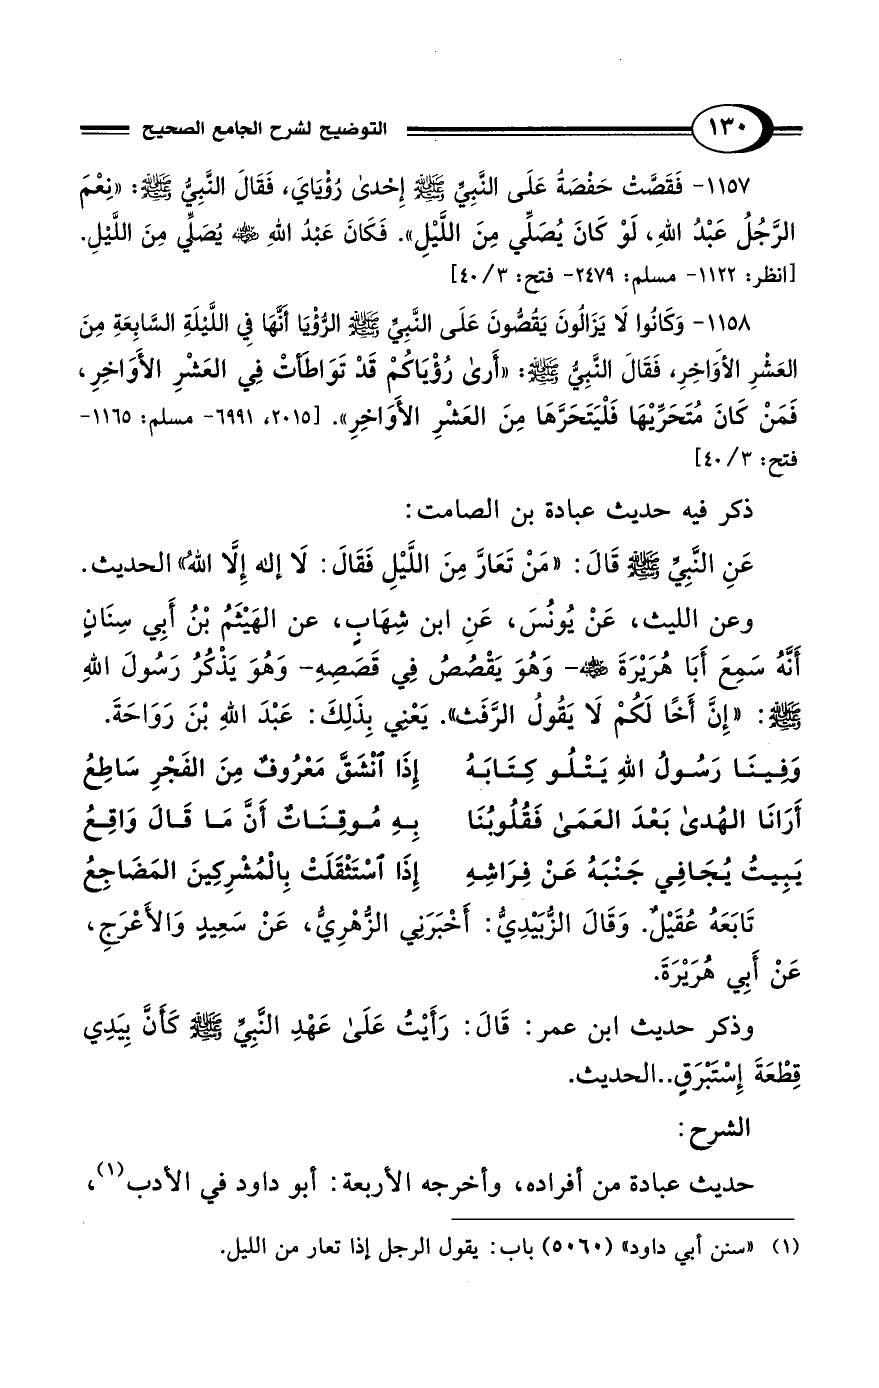 ١٣٠ التوضيح لشرح الجامع الصحيح
١١٥٧- فَقَصَّتْ حَفْصَةُ عَلَى النَّبِيِّ ﷺ إِحْدىٰ رُؤْيَايَ، فَقَالَ النَّبِيُّ ﷺ: «نِعْمَ
الرَّجُلُ عَبْدُ اللهِ، لَوْ كَانَ يُصَلِّي مِنَ اللَّيْلِ». فَكَانَ عَبْدُ اللهِ ﵁ يُصَلِّي مِنَ اللَّيْلِ.
[انظر: ١١٢٢- مسلم: ٢٤٧٩- فتح: ٣/ ٤٠]
١١٥٨- وَكَانُوا لَا يَزَالُونَ يَقُصُّونَ عَلَى النَّبِيِّ ﷺ الرُّؤْيَا أَنَّهَا فِي اللَّيْلَةِ السَّابِعَةِ مِنَ
العَشْرِ الأَوَاخِرِ، فَقَالَ النَّبِيُّ ﷺ: «أَرىٰ رُؤْيَاكُمْ قَدْ تَوَاطَأَتْ فِي العَشْرِ الأَوَاخِرِ،
فَمَنْ كَانَ مُتَحَرِّيْهَا فَلْيَتَحَرَّهَا مِنَ العَشْرِ الأَوَاخِرِ». [٢٠١٥، ٦٩٩١- مسلم: ١١٦٥-
فتح: ٣/ ٤٠]
ذكر فيه حديث عبادة بن الصامت:
عَنِ النَّبِيِّ ﷺ قَالَ: «مَنْ تَعَارَّ مِنَ اللَّيْلِ فَقَالَ: لَا إله إِلَّا اللهُ» الحديث.
وعن الليث، عَنْ يُونُسَ، عَنِ ابن شِهَابٍ، عن الهَيْثَمُ بْنُ أَبِي سِنَانٍ
أَنَّهُ سَمِعَ أَبَا هُرَيْرَةَ ﵁- وَهُوَ يَقْصُصُ فِي قَصَصِهِ- وَهُوَ يَذْكُرُ رَسُولَ اللهِ
ﷺ: «إِنَّ أَخًا لَكُمْ لَا يَقُولُ الرَّفَثَ». يَعْنِي بِذَلِكَ: عَبْدَ اللهِ بْنَ رَوَاحَةَ.
وَفِينَا رَسُولُ اللهِ يَتْلُو كِتَابَهُ إِذَا ٱنْشَقَّ مَعْرُوفٌ مِنَ الفَجْرِ سَاطِعُ
أَرَانَا الهُدىٰ بَعْدَ العَمَىٰ فَقُلُوبُنَا بِهِ مُوقِنَاتٌ أَنَّ مَا قَالَ وَاقِعُ
يَبِيتُ يُجَافِي جَنْبَهُ عَنْ فِرَاشِهِ إِذَا ٱسْتَثْقَلَتْ بِالْمُشْرِكِينَ المَضَاجِعُ
تَابَعَهُ عُقَيْلٌ. وَقَالَ الزُّبَيْدِيُّ: أَخْبَرَنِي الزُّهْرِيُّ، عَنْ سَعِيدٍ وَالأَعْرَجِ،
عَنْ أَبِي هُرَيْرَةَ.
وذكر حديث ابن عمر: قَالَ: رَأَيْتُ عَلَىٰ عَهْدِ النَّبِيِّ ﷺ كَأَنَّ بِيَدِي
قِطْعَةَ إِسْتَبْرَقٍ..الحديث.
الشرح:
حديث عبادة من أفراده، وأخرجه الأربعة: أبو داود في الأدب(١)،
(١) «سنن أبي داود» (٥٠٦٠) باب: يقول الرجل إذا تعار من الليل.